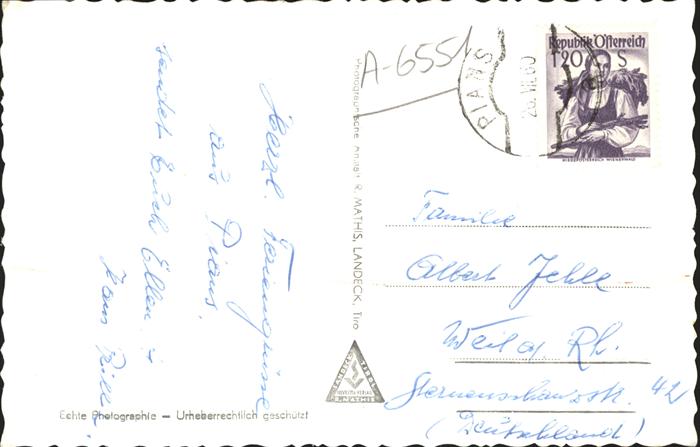 Herzl. Feriengrüsse
aus Pians.
sendet Euch Ellen u.
Hans
A-6551
PIANS
26. VII. 60
Republik Österreich
1'20 S
NIEDERÖSTERREICH WIENERWALD
Photographische Anstalt R. MATHIS, LANDECK, Tirol
Familie
Albert Jehle
Weil a/ Rh.
Sternenschanzstr. 42
(Deutschland)
R. MATHIS
Echte Photographie – Urheberrechtlich geschützt